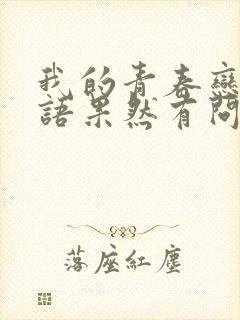 我的青春戀
語果然有問
落座紅塵